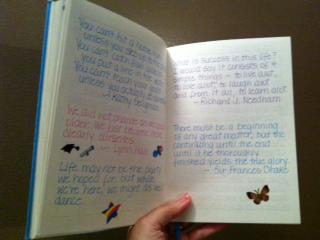 You can't hit a home run
unless you step up to the
You can't catch fish unless
You put a line in the
You can't reach your goals
unless you actually
- Kathy Seligman
We did not change as we grew
older; We just became more
clearly ourselves.
- Lynn Hall
Life may not be the party
we hoped for, but while
we're here, we might as well
dance.
What is success in this life?
I would say it consists of 4
simple things - to live a lot,
to love a lot, to laugh a lot
and from it all, to learn a lot.
- Richard J. Needham
There must be a beginning
of any great matter, but the
continuing until the end
until it be thoroughly
finished yields the true glory.
- Sir Frances Drake